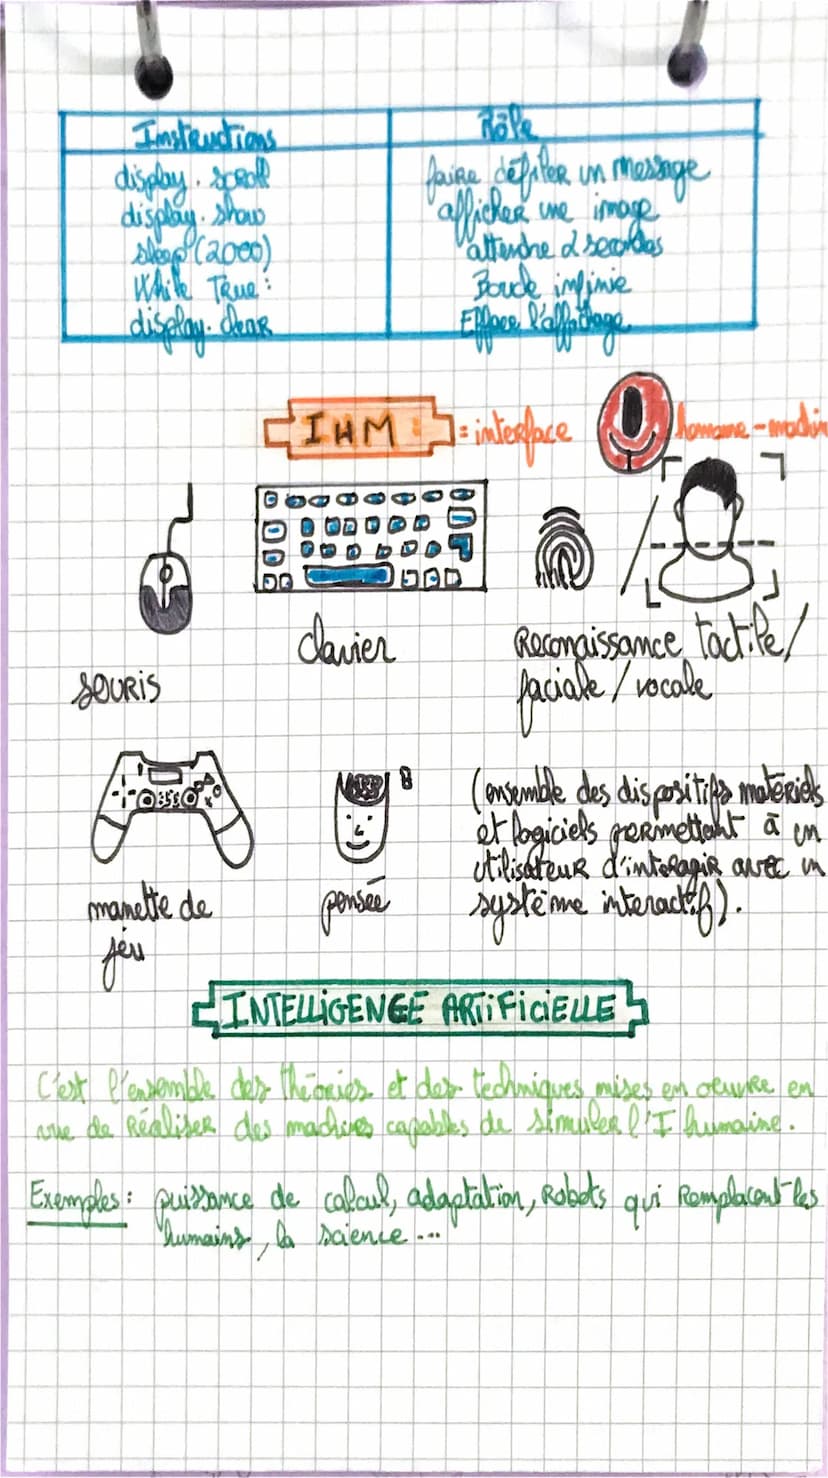 Instructions Rôle
display.scroll faire défiler un message
display.show afficher une image
sleep(2000) attendre 2 secondes
While True: Boucle infinie
display.clear Efface l'affichage
IHM : = interface homme-machin
souris
clavier
Reconaissance tactile/
faciale/vocale
manette de
jeu
pensée
(ensemble des dispositifs matériels
et logiciels permettant à un
utilisateur d'interagir avec un
système interactif).
INTELLIGENCE ARTIFICIELLE
C'est l'ensemble des théories et des techniques mises en oeuvre en
vue de réaliser des machines capables de simuler l'I humaine.
Exemples: puissance de calcul, adaptation, robots qui remplacent les
humains, la science...